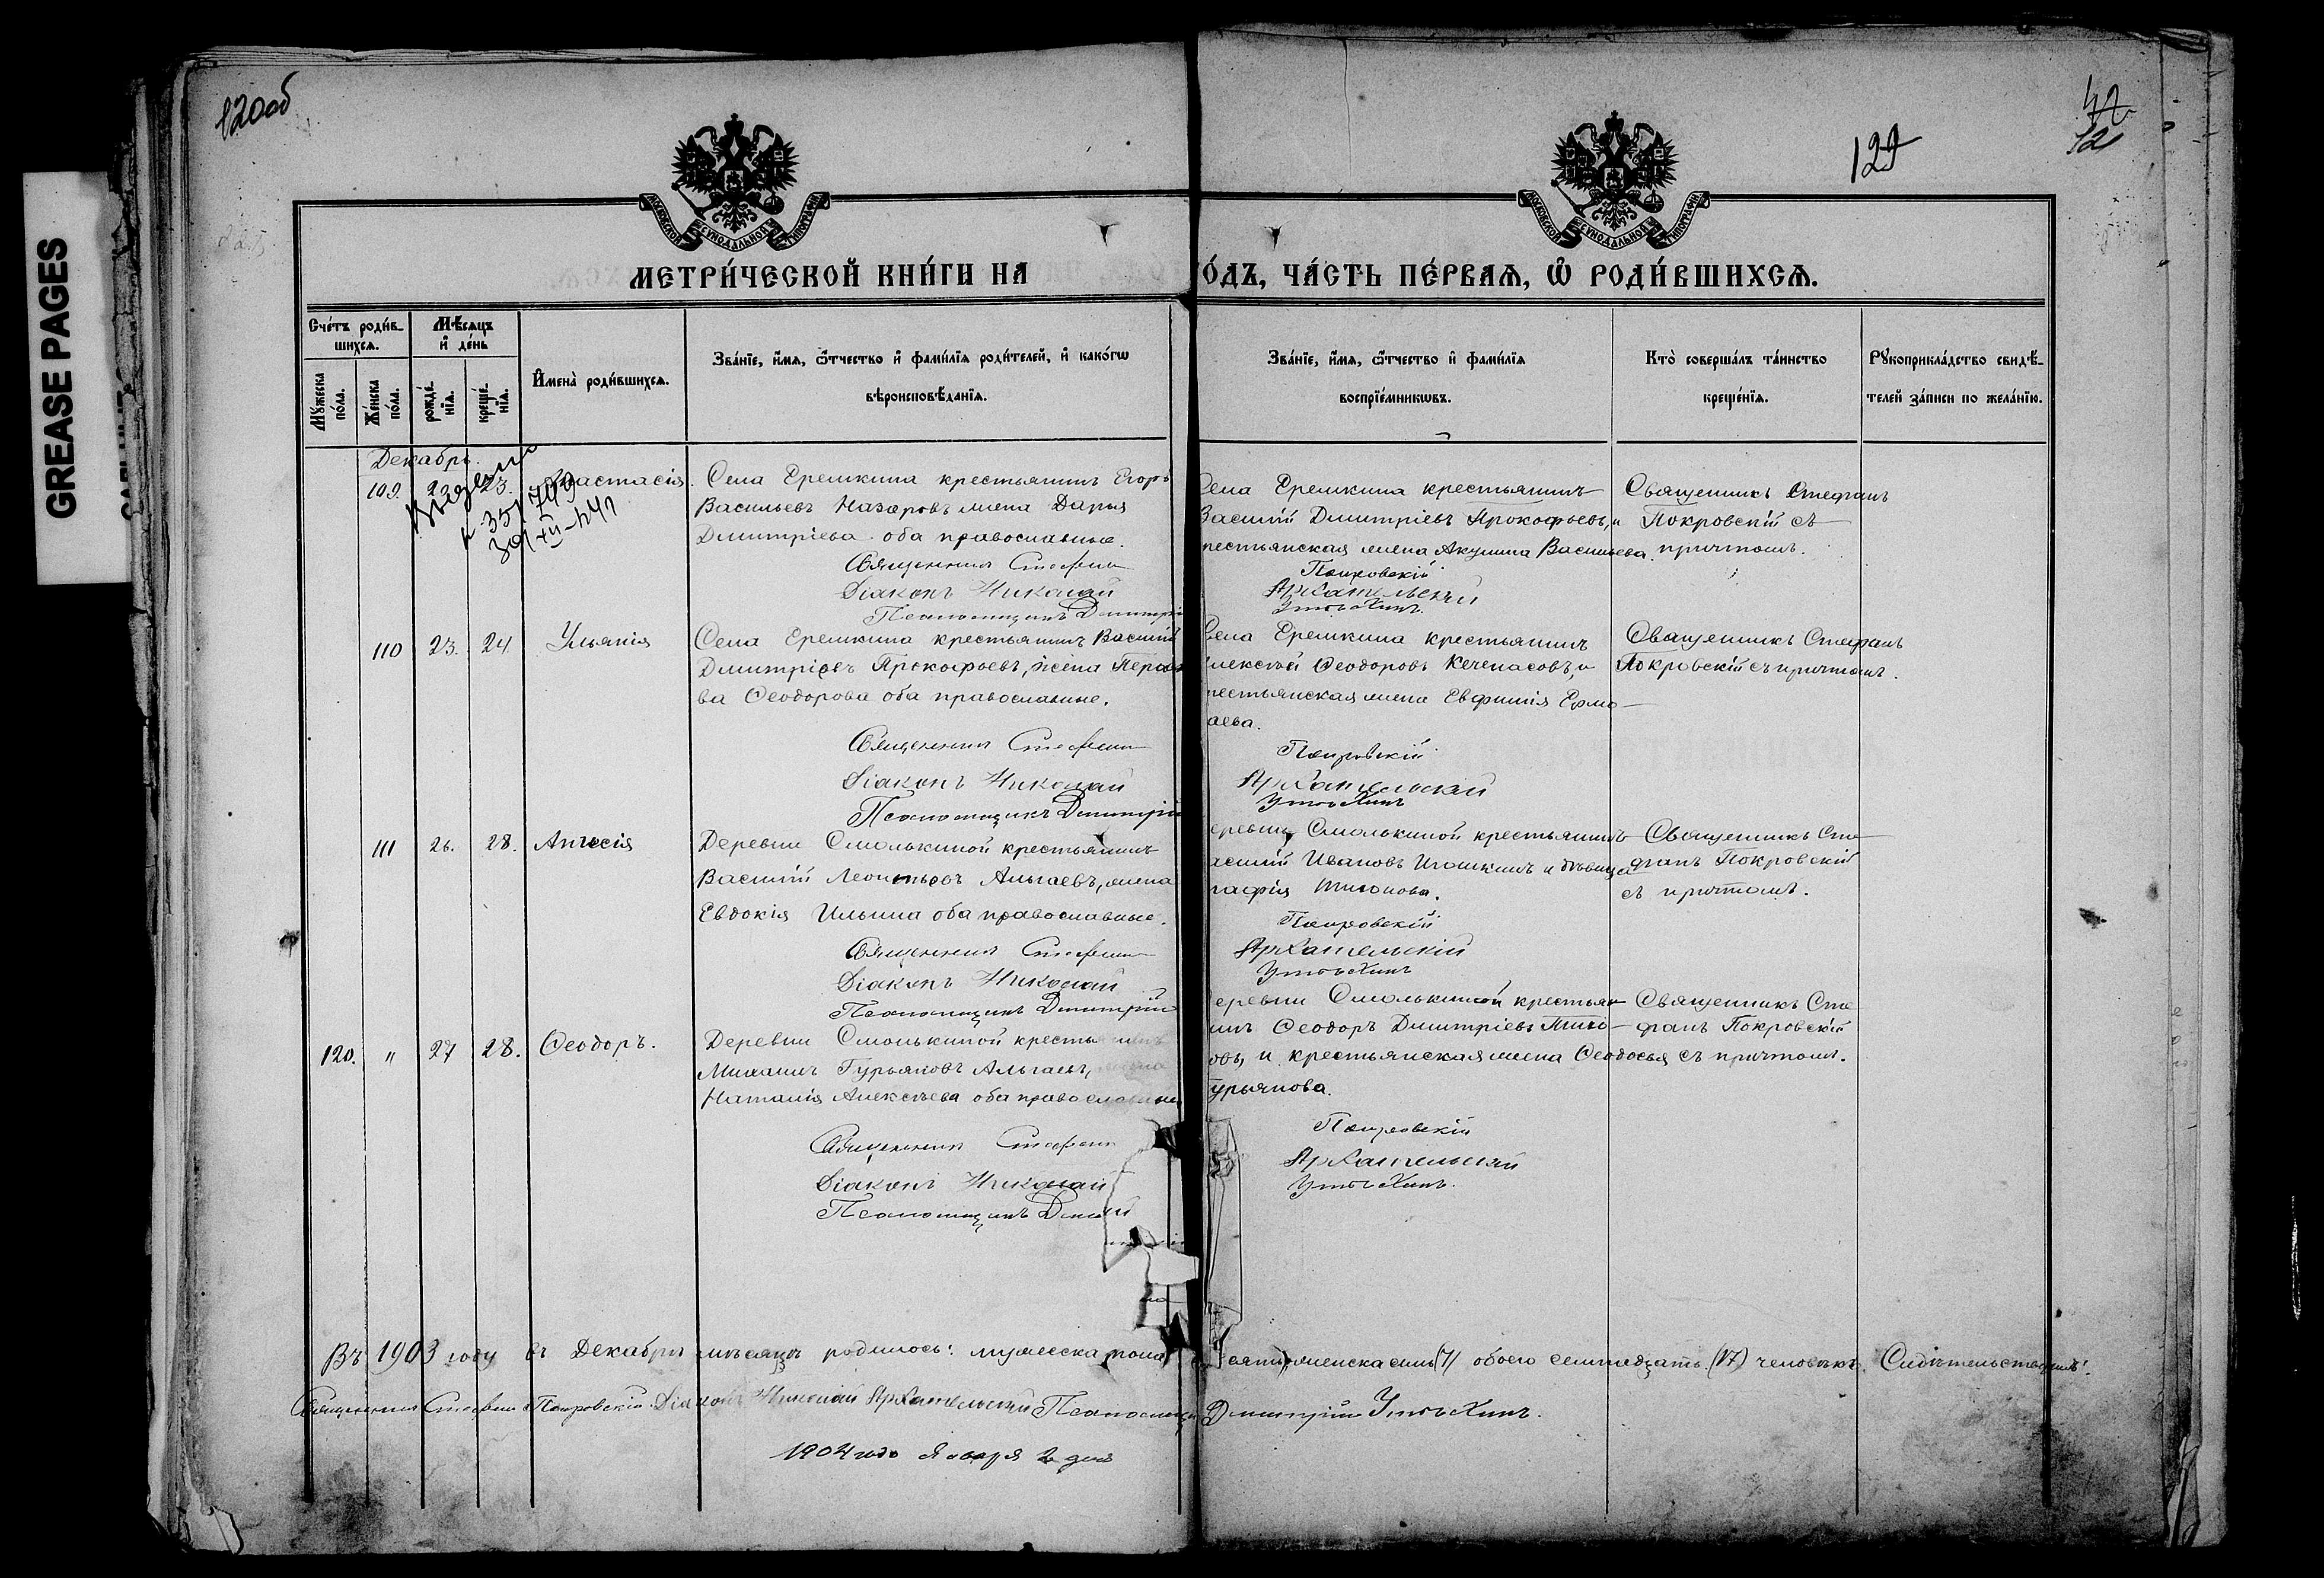 120об
42
121
122
GREASE PAGES
МОСКОВСКОЙ СѴНОДАЛЬНОЙ ТИПОГРАФІИ
МОСКОВСКОЙ СѴНОДАЛЬНОЙ ТИПОГРАФІИ
МЕТРИ́ЧЕСКОЙ КНИ́ГИ НА
О́ДЪ, ЧА́СТЬ ПЕ́РВАѦ, Ѿ РОДИ́ВШИХСѦ.
Сче́тъ роди́в-
шихсѧ.
Мѣ́сѧцъ
и҆ де́нь
Мꙋ́жеска
по́ла.
Же́нска
по́ла.
рожде́-
нїѧ.
креще́-
нїѧ.
И҆мена̀ роди́вшихсѧ.
Зва́нїе, и҆́мѧ, ѻ҆́тчество и҆ фами́лїѧ роди́телей, и҆ како́гѡ
вѣроисповѣ́данїѧ.
Зва́нїе, и҆́мѧ, ѻ҆́тчество и҆ фами́лїѧ
воспрїе́мникѡвъ.
Кто̀ соверша́лъ та́инство
креще́нїѧ.
Рꙋкоприкла́дство свидѣ́-
телей за́писи по жела́нїю.
Декабрь.
109. 23. 23. Анастасія.
Села Еремкина крестьянинъ Егоръ
Васильевъ Назаровъ жена Дарья
Димитріева оба православные.
Священникъ Стефанъ
Діаконъ Николай
Псаломщикъ Димитрій
Села Еремкина крестьянинъ
Василій Димитріевъ Прокофьевъ, и
рестьянская жена Акулина Васильева.
Покровскій
Архангельскій
Утѣхинъ.
Священникъ Стефанъ
Покровскій съ
причтомъ.
110 23. 24 Ульянія
Села Еремкина крестьянинъ Василій
Димитріевъ Прокофьевъ, жена Параске
ва Ѳеодорова оба православные.
Священникъ Стефанъ
Діаконъ Николай
Псаломщикъ Димитрій
Села Еремкина крестьянинъ
лексѣй Ѳеодоровъ Кечепасовъ, и
рестьянская жена Евфимія Ермо-
лаева.
Покровскій
Архангельскій
Утѣхинъ
Священникъ Стефанъ
Покровскій съ причтомъ.
111 26. 28. Анисія
Деревни Смолькиной крестьянинъ
Василій Леонтьевъ Альгаевъ, жена
Евдокія Ильина оба православные.
Священникъ Стефанъ
Діаконъ Николай
Псаломщикъ Димитрій
еревни Смолькиной крестьянинъ
асилій Ивановъ Игошкинъ и дѣвица
Покровскій
Архангельскій
Утѣхинъ
Священникъ Сте
фанъ Покровскій
съ причтомъ.
120. " 27 28. Ѳеодоръ.
Деревни Смолькиной крестьянинъ
Михаилъ Гурьяновъ Альгаевъ, жена
Наталія Алексѣева оба православные
Священникъ Стефанъ
Діаконъ Николай
Псаломщикъ
еревни Смолькиной крестьян
инъ Ѳеодоръ Димитріевъ Тихо-
овъ, и крестьянская жена Ѳеодосья
урьянова.
Покровскій
Архангельскій
Утѣхинъ.
Священникъ Сте
фанъ Покровскій
съ причтомъ.
Въ 1903 году въ Декабрѣ мѣсяцѣ родилось: мужеска пола сять, женска семь (7) обоего семнадцать (17) человѣкъ. Свидѣтельствуемъ:
Священникъ Стефанъ Покровскій. Діаконъ Николай Архангельскій Псаломщикъ Димитрій Утѣхинъ.
1904 года Января 2 дня